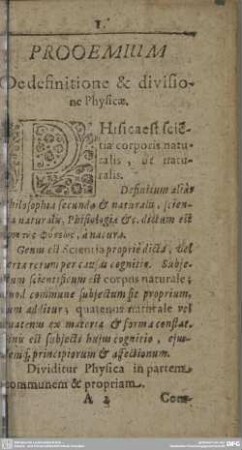 1.
PROOEMIUM
De definitione & divisio-
ne Physicæ.
PHisica est sciẽ-
tia corporis natu-
ralis, ut natu-
ralis.
Definitum aliàs
Philosophia secunda & naturalis, scien-
tia naturalis, Physiologia &c. dictum est
φύσεως, à natura.
Genus est Scientia propriè dicta, vel
certa rerum per causas cognitio. Subje-
ctum scientificum est corpus naturale;
quod commune subjectum sit proprium,
additur; quatenus naturale vel
quatenus ex materia & forma constat.
Finis est subjecti hujus cognitio, ejus-
demq́, principiorum & affectionum.
Dividitur Physica in partem
communem & propriam.
A 2 Com-